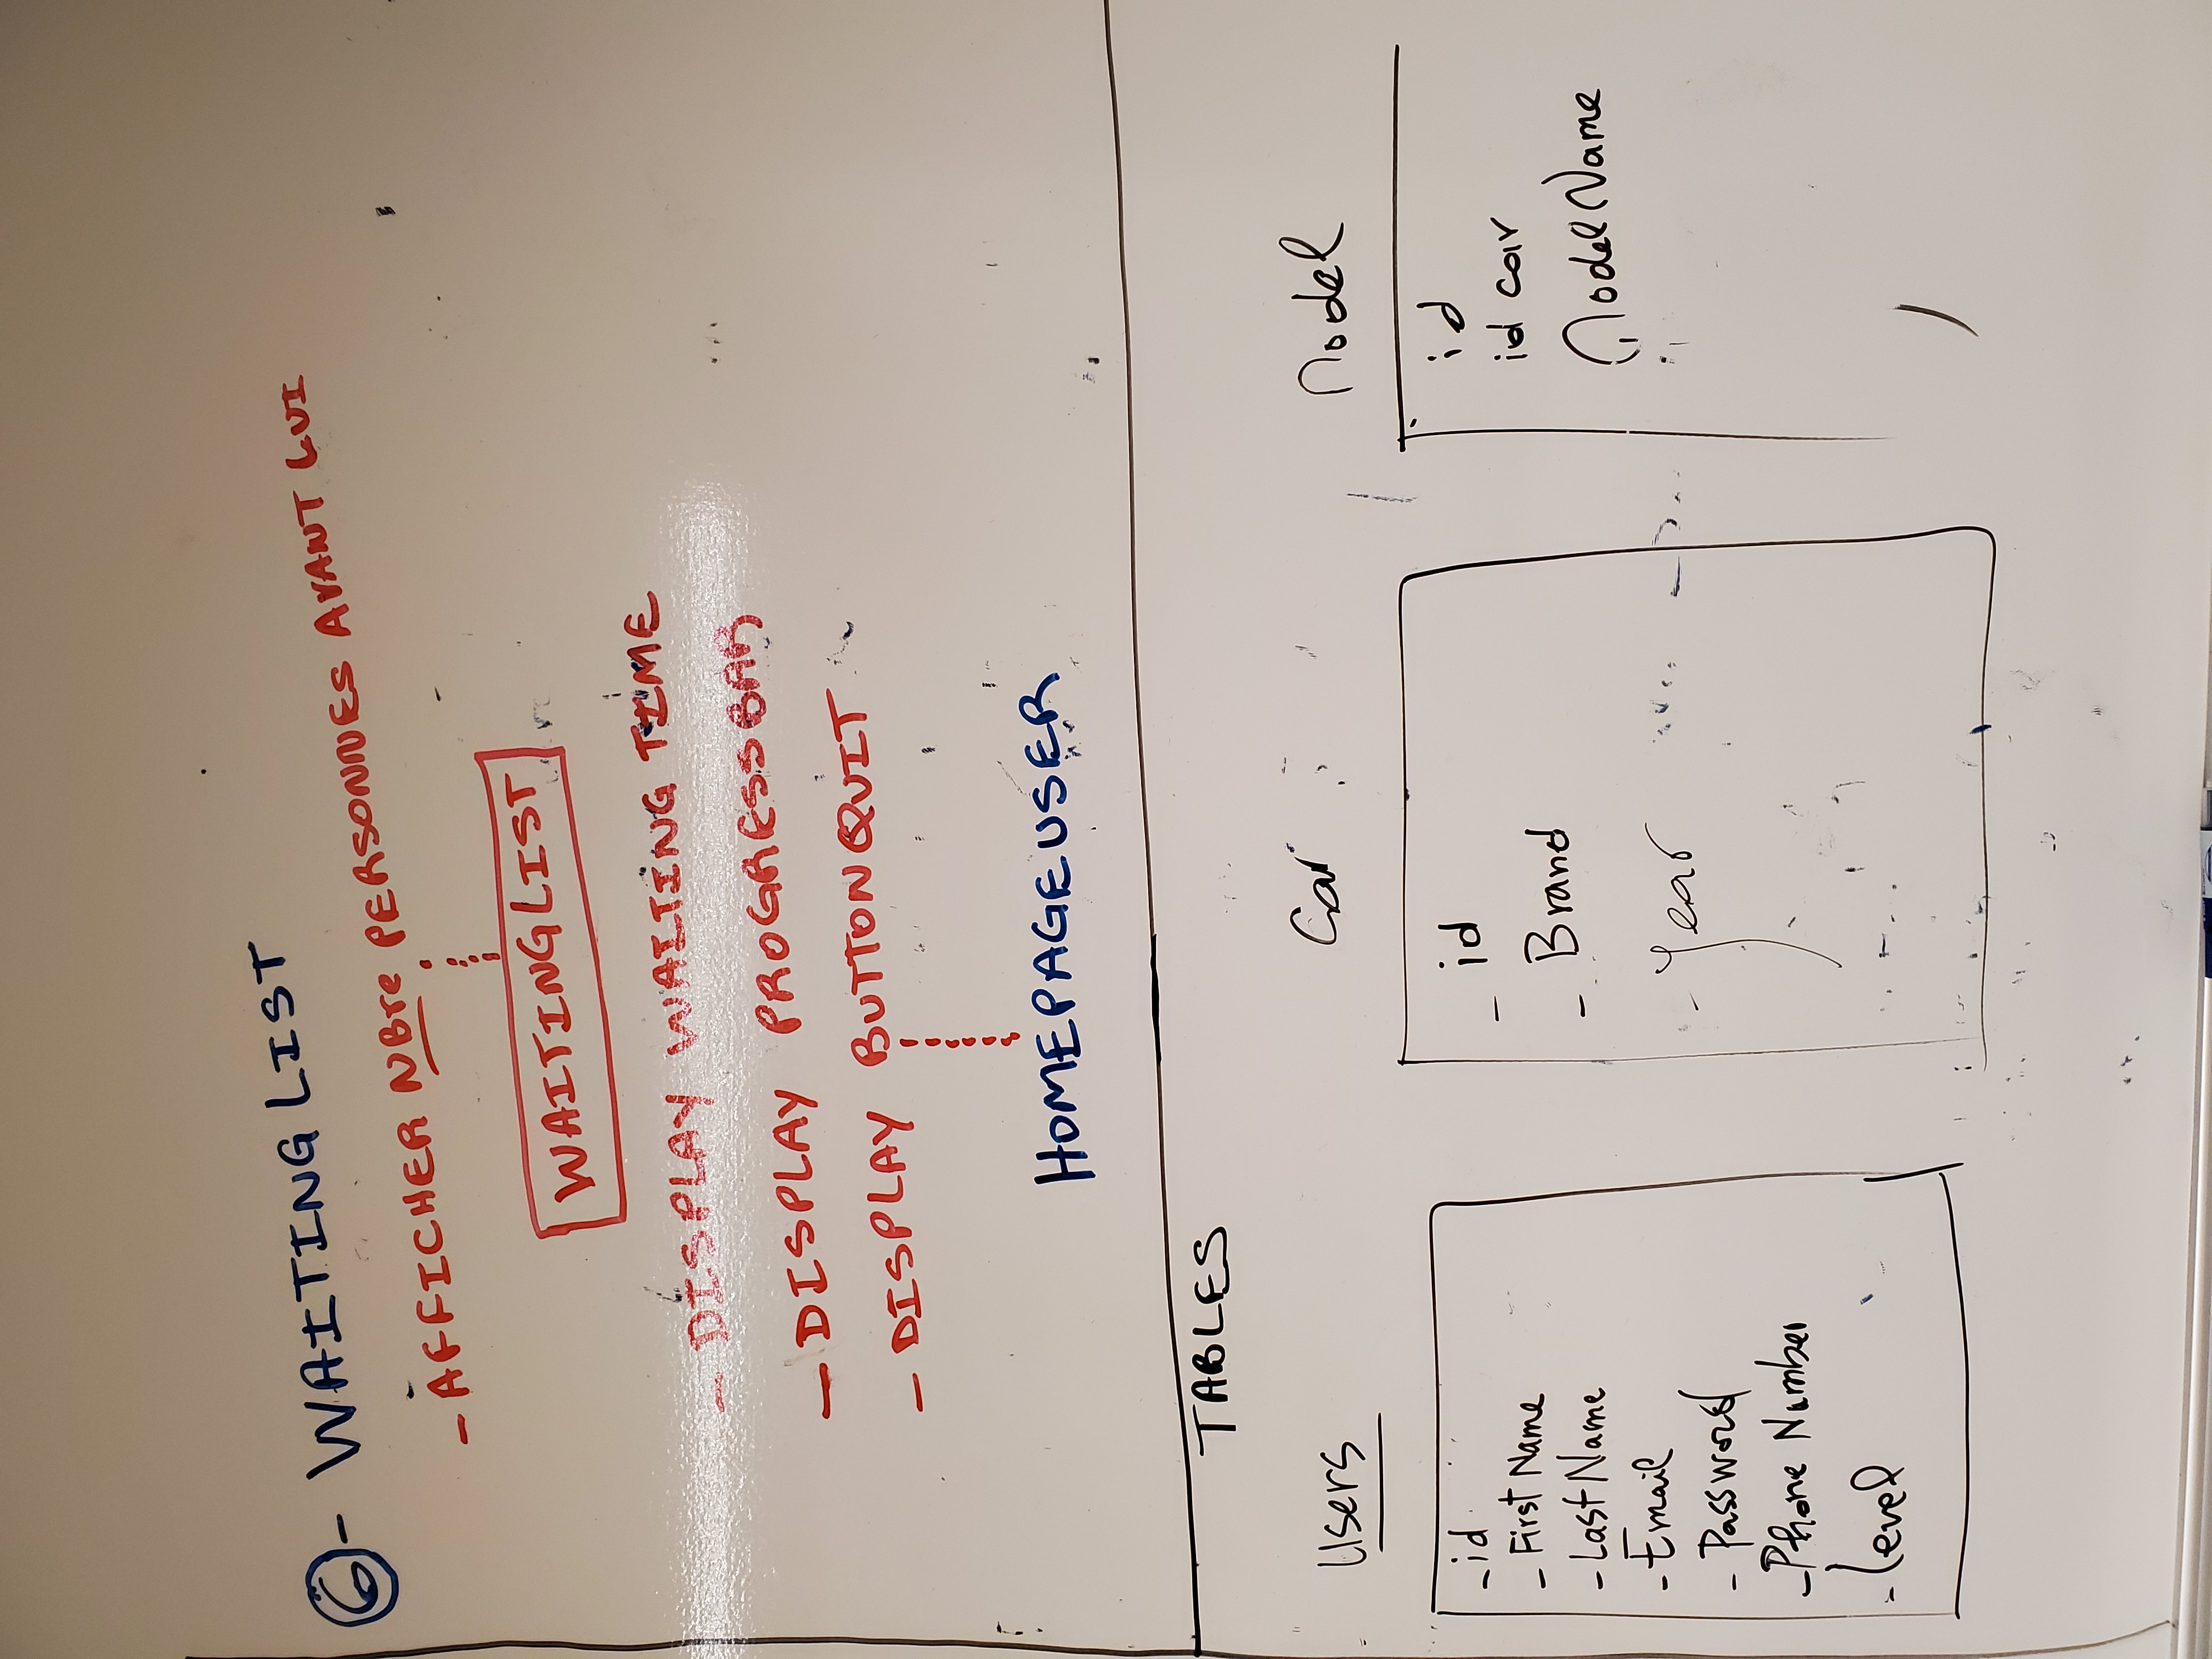 6 - WAITING LIST
- AFFICHER NBre PERSONNES AVANT LUI
WAITINGLIST
- DISPLAY WAITING TIME
- DISPLAY PROGRESSBAR
- DISPLAY BUTTONQUIT
HOMEPAGEUSER
TABLES
Users
- id
- First Name
- Last Name
- Email
- Password
- Phone Number
- level
Car
- id
- Brand
- year
Model
id
id car
Model Name